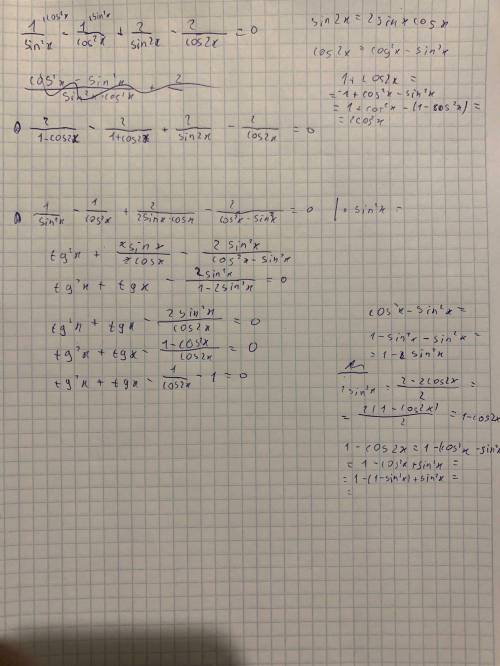 1/sin²x ^{\cos²x} - 1/cos²x ^{\sin²x} + 2/sin2x - 2/cos2x = 0
sin2x = 2sinx cosx
cos2x = cos²x - sin²x
cos²x - sin²x / sin²x · cos²x + 2
1 + cos2x =
= 1 + cos²x - sin²x
= 1 + cos²x - (1 - cos²x) =
= 2cos²x
2/1-cos2x - 2/1+cos2x + 2/sin2x - 2/cos2x = 0
1/sin²x - 1/cos²x + 2/2sinx·cosx - 2/cos²x - sin²x = 0 | · sin²x
tg²x + 2sinx/2cosx - 2sin²x/cos²x - sin²x
tg²x + tgx - 2sin²x/1-2sin²x = 0
tg²x + tgx - 2sin²x/cos2x = 0
tg²x + tgx - 1-cos²x/cos2x = 0
tg²x + tgx - 1/cos2x - 1 = 0
cos²x - sin²x =
1 - sin²x - sin²x =
= 1 - 2sin²x
2sin²x = 2-2cos2x/2 =
= 2(1-cos2x)/2 = 1-cos2x
1 - cos2x = 1 - (cos²x - sin²x
= 1 - cos²x + sin²x =
= 1 - (1 - sin²x) + sin²x =
=